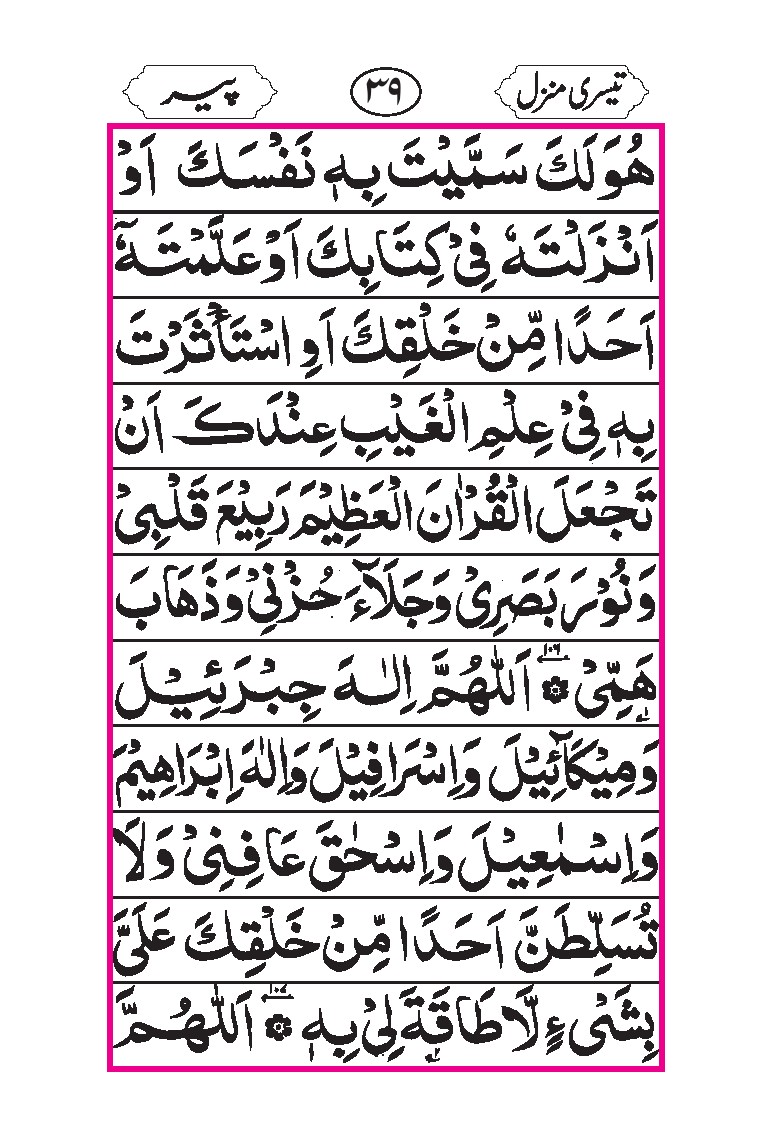 تیسری منزل ۳۹ پیر
هُوَلَكَ سَمَّيْتَ بِهٖ نَفْسَكَ اَوْ
اَنْزَلْتَهٗ فِيْ كِتَابِكَ اَوْعَلَّمْتَهٗٓ
اَحَدًا مِّنْ خَلْقِكَ اَوِ اسْتَأْثَرْتَ
بِهٖ فِيْ عِلْمِ الْغَيْبِ عِنْدَكَ اَنْ
تَجْعَلَ الْقُرْاٰنَ الْعَظِيْمَ رَبِيْعَ قَلْبِيْ
وَنُوْرَ بَصَرِيْ وَجَلَآءَ حُزْنِيْ وَذَهَابَ
هَمِّيْ ۱۰۶ اَللّٰهُمَّ اِلٰهَ جِبْرَئِيْلَ
وَمِيْكَآئِيْلَ وَاِسْرَافِيْلَ وَاِلٰهَ اِبْرَاهِيْمَ
وَاِسْمٰعِيْلَ وَاِسْحٰقَ عَافِنِيْ وَلَا
تُسَلِّطَنَّ اَحَدًا مِّنْ خَلْقِكَ عَلَيَّ
بِشَيْءٍ لَّا طَاقَةَ لِيْ بِهٖ ۱۰۷ اَللّٰهُمَّ